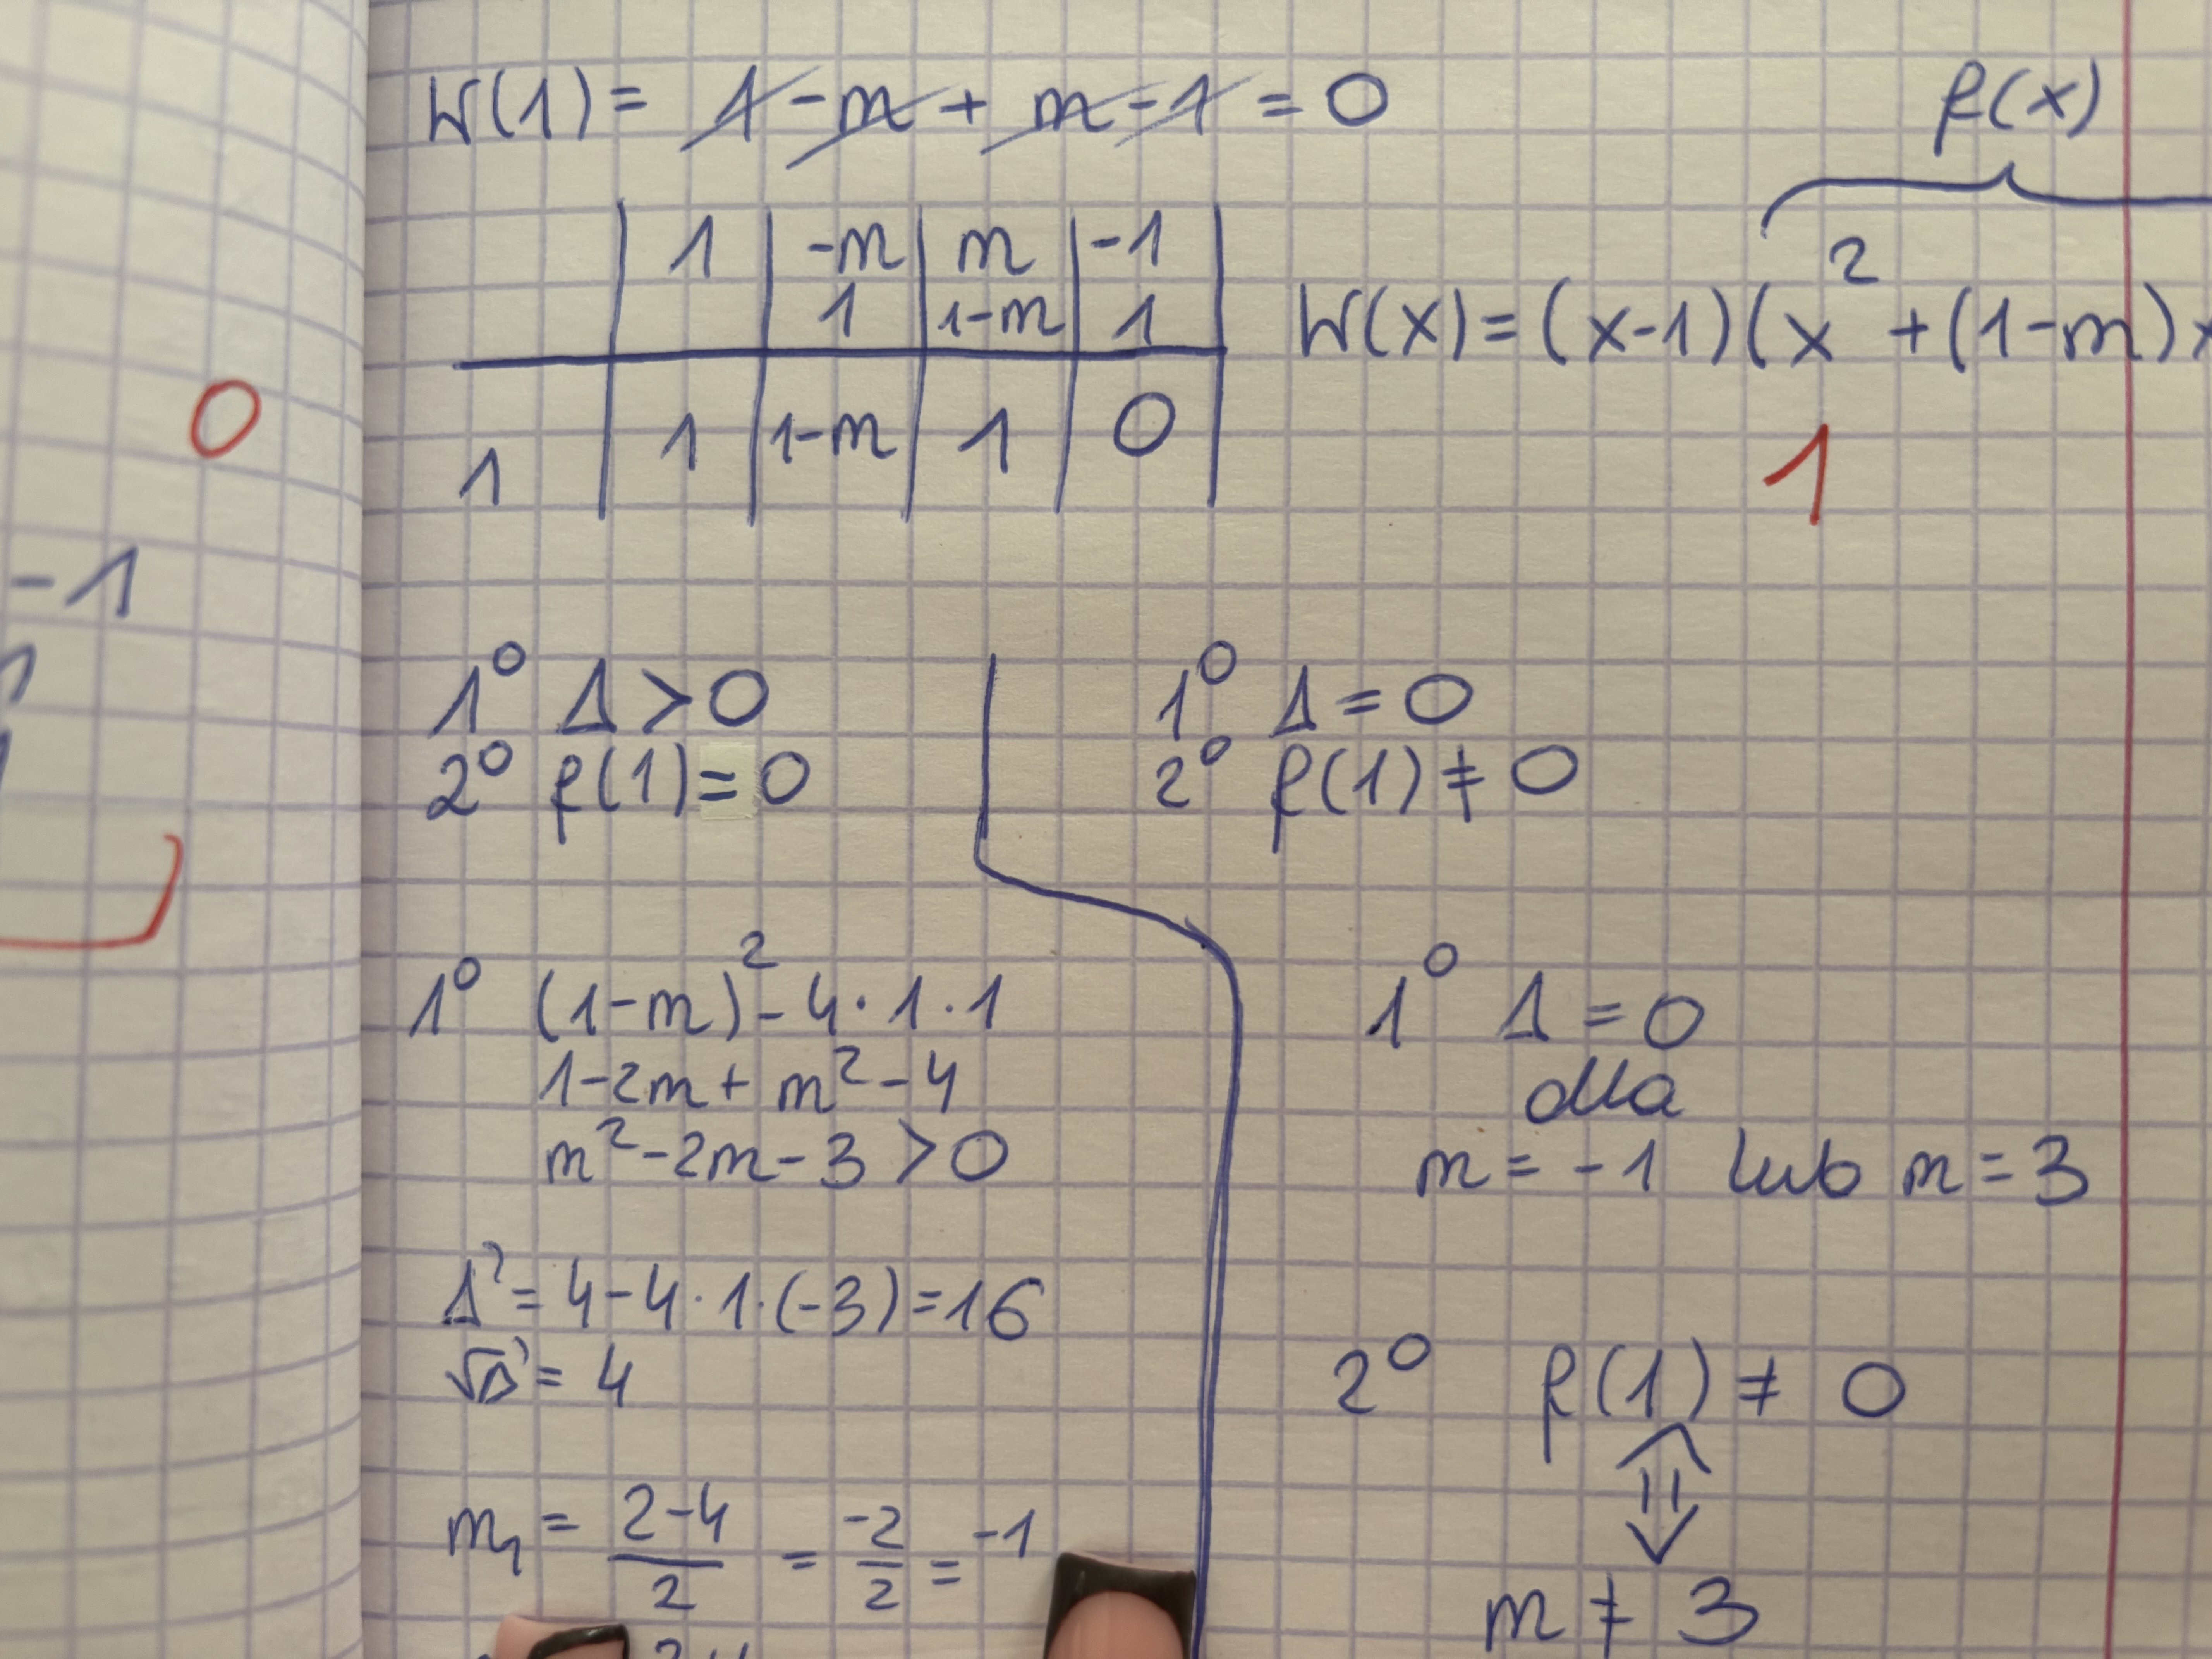 0
-1
W(1) = 1 - m + m - 1 = 0
f(x)
1 | -m | m | -1
1 | 1-m | 1
1 | 1 | 1-m | 1 | 0
W(x) = (x-1)(x² + (1-m)x
1
1° Δ > 0
2° f(1) = 0
1° Δ = 0
2° f(1) ≠ 0
1° (1-m)² - 4·1·1
1 - 2m + m² - 4
m² - 2m - 3 > 0
Δ' = 4 - 4·1·(-3) = 16
√Δ' = 4
m₁ = (2-4)/2 = -2/2 = -1
1° Δ = 0
dla
m = -1 lub m = 3
2° f(1) ≠ 0
⇕
m ≠ 3